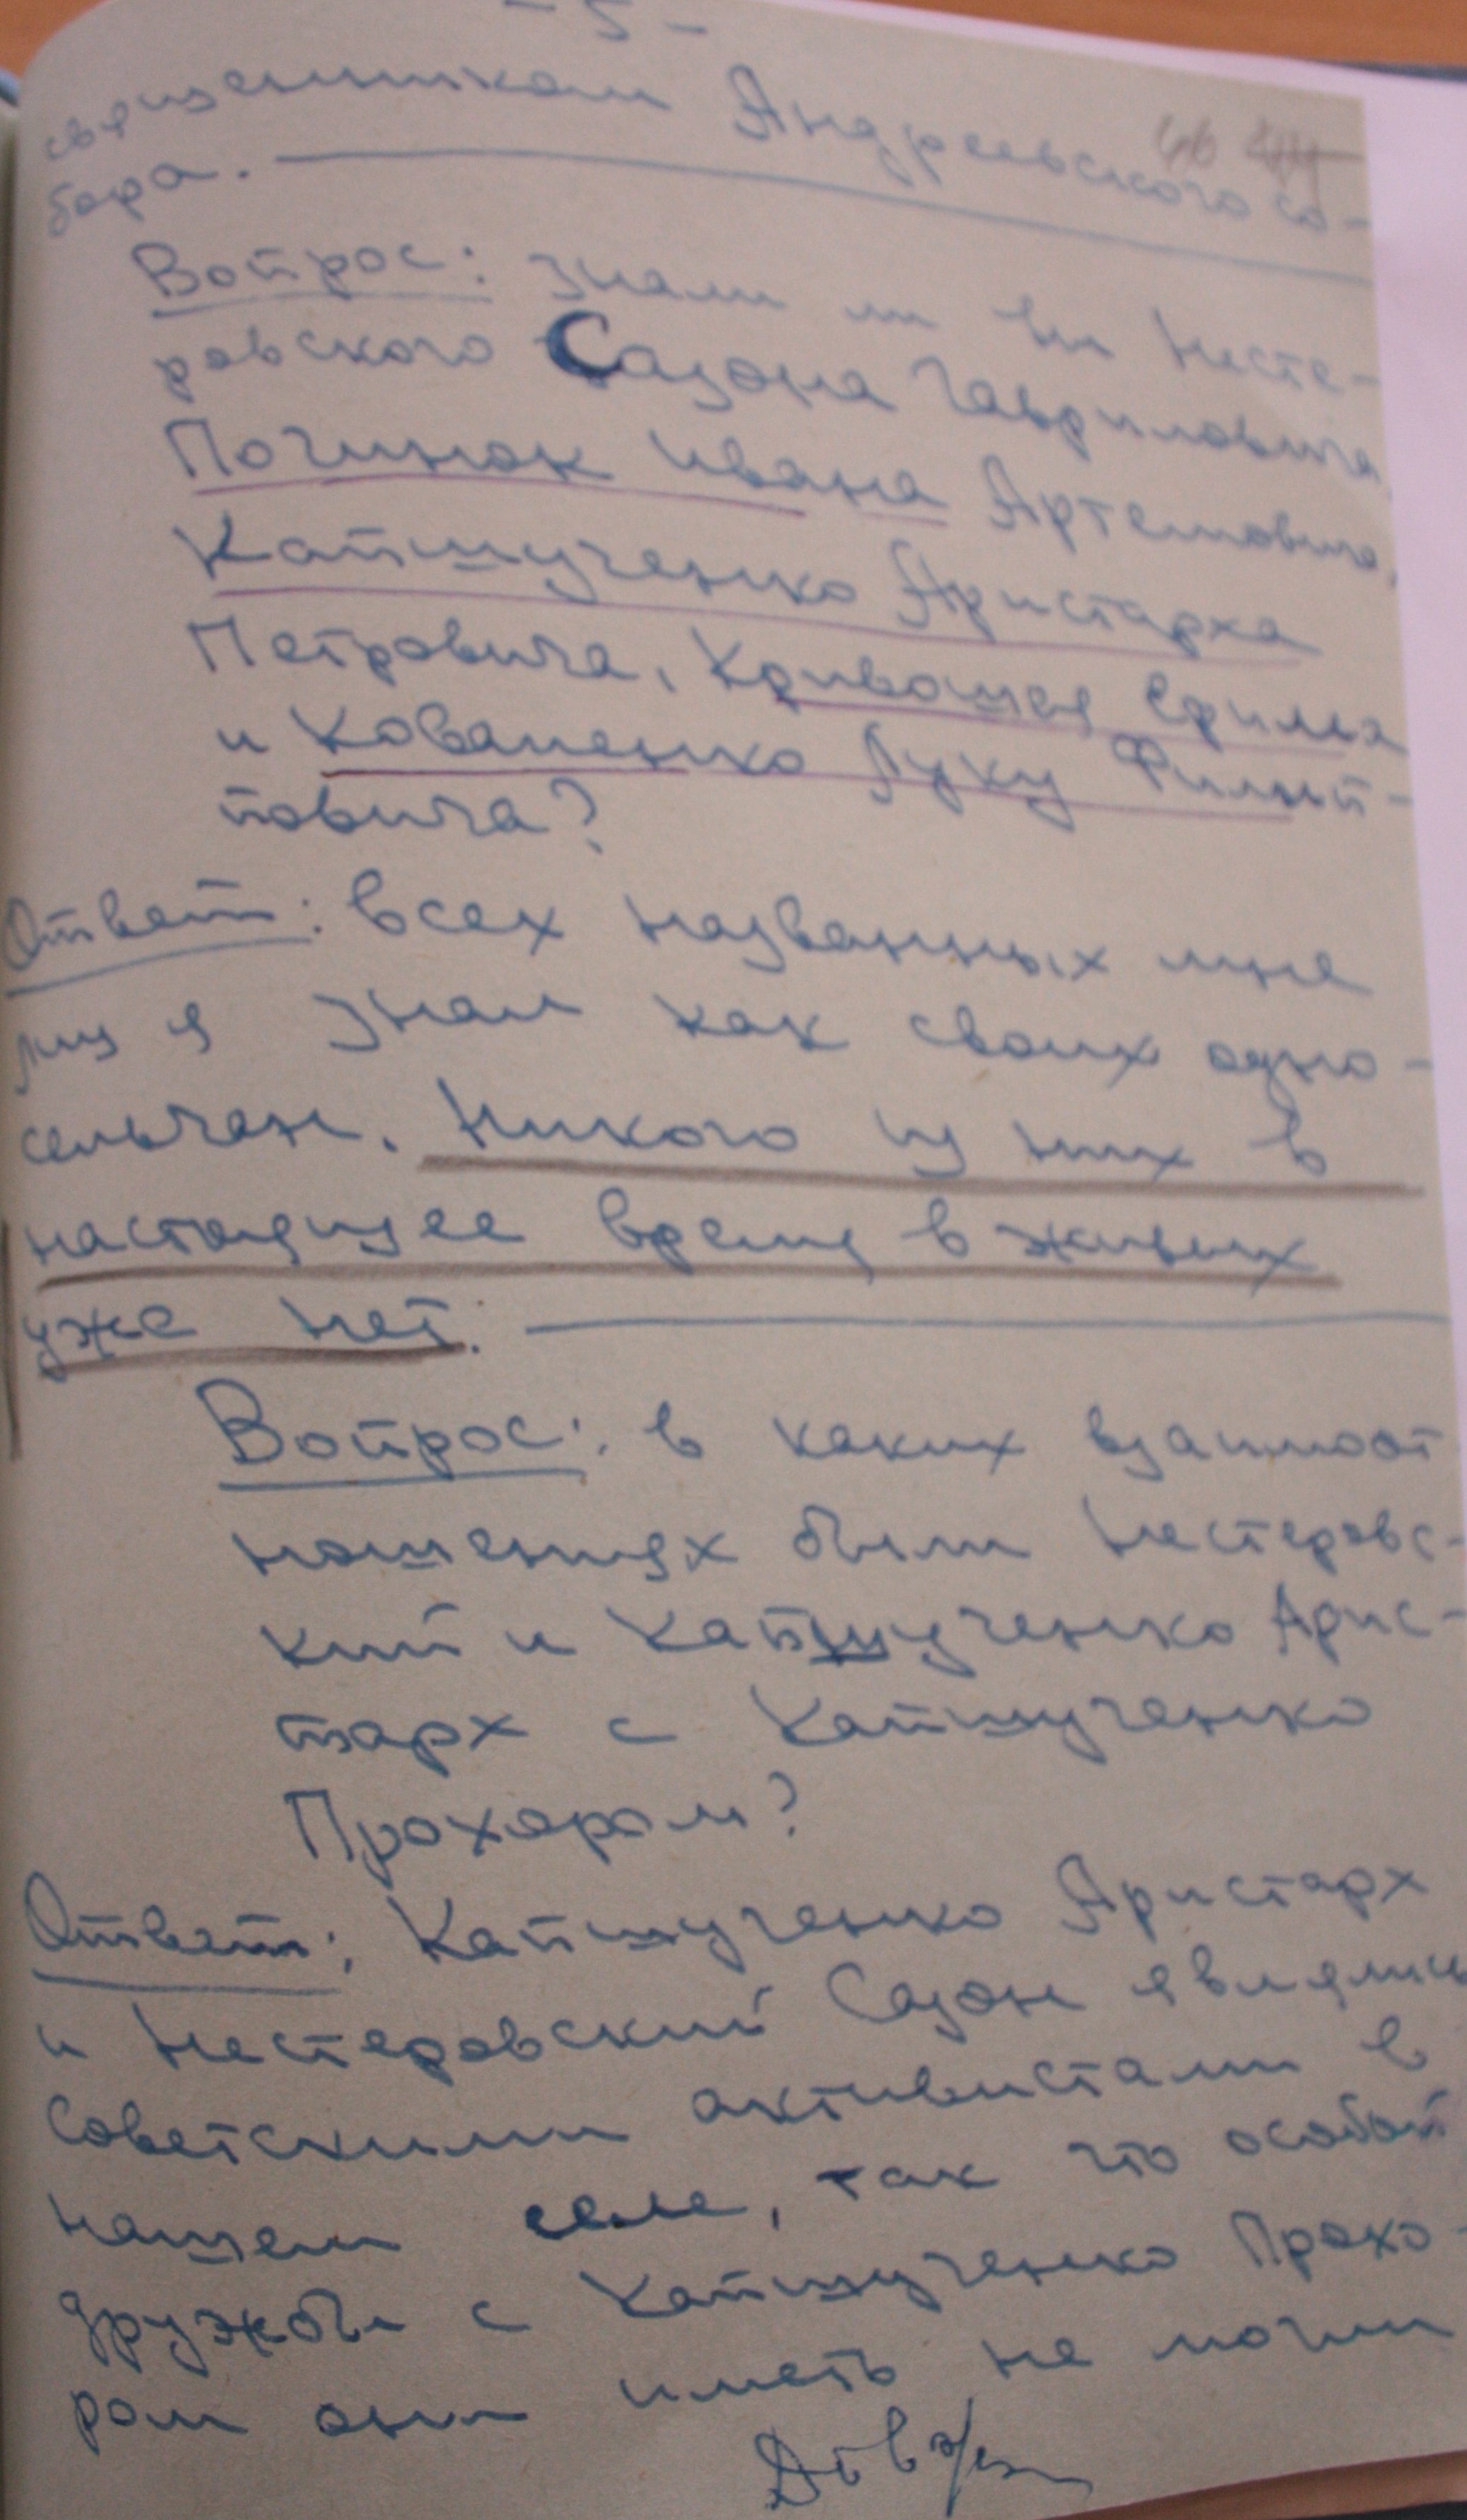 - 5 -
46
священником Андреевского со-
бора.
Вопрос: знали ли вы Несте-
ровского Сазона Гавриловича,
Починок Ивана Артемовича,
Капшученко Аристарха
Петровича, Кривошея Ефима
и Коваленко Луку Филип-
повича?
Ответ: всех названных мне
лиц я знал как своих одно-
сельчан. Никого из них в
настоящее время в живых
уже нет.
Вопрос: в каких взаимоот
ношениях были Нестеровс-
кий и Капшученко Арис-
тарх с Капшученко
Прохором?
Ответ: Капшученко Аристарх
и Нестеровский Сазон являлись
советскими активистами в
нашем селе, так что особой
дружбы с Капшученко Прохо-
ром они иметь не могли